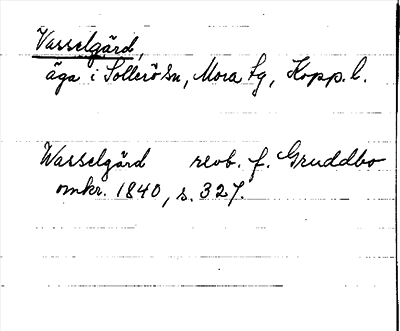 Vasselgård,
äga i Sollerö sn, Mora tg, Kopp. l.
Wasselgård revb. f. Gruddbo
omkr. 1840, s. 327.